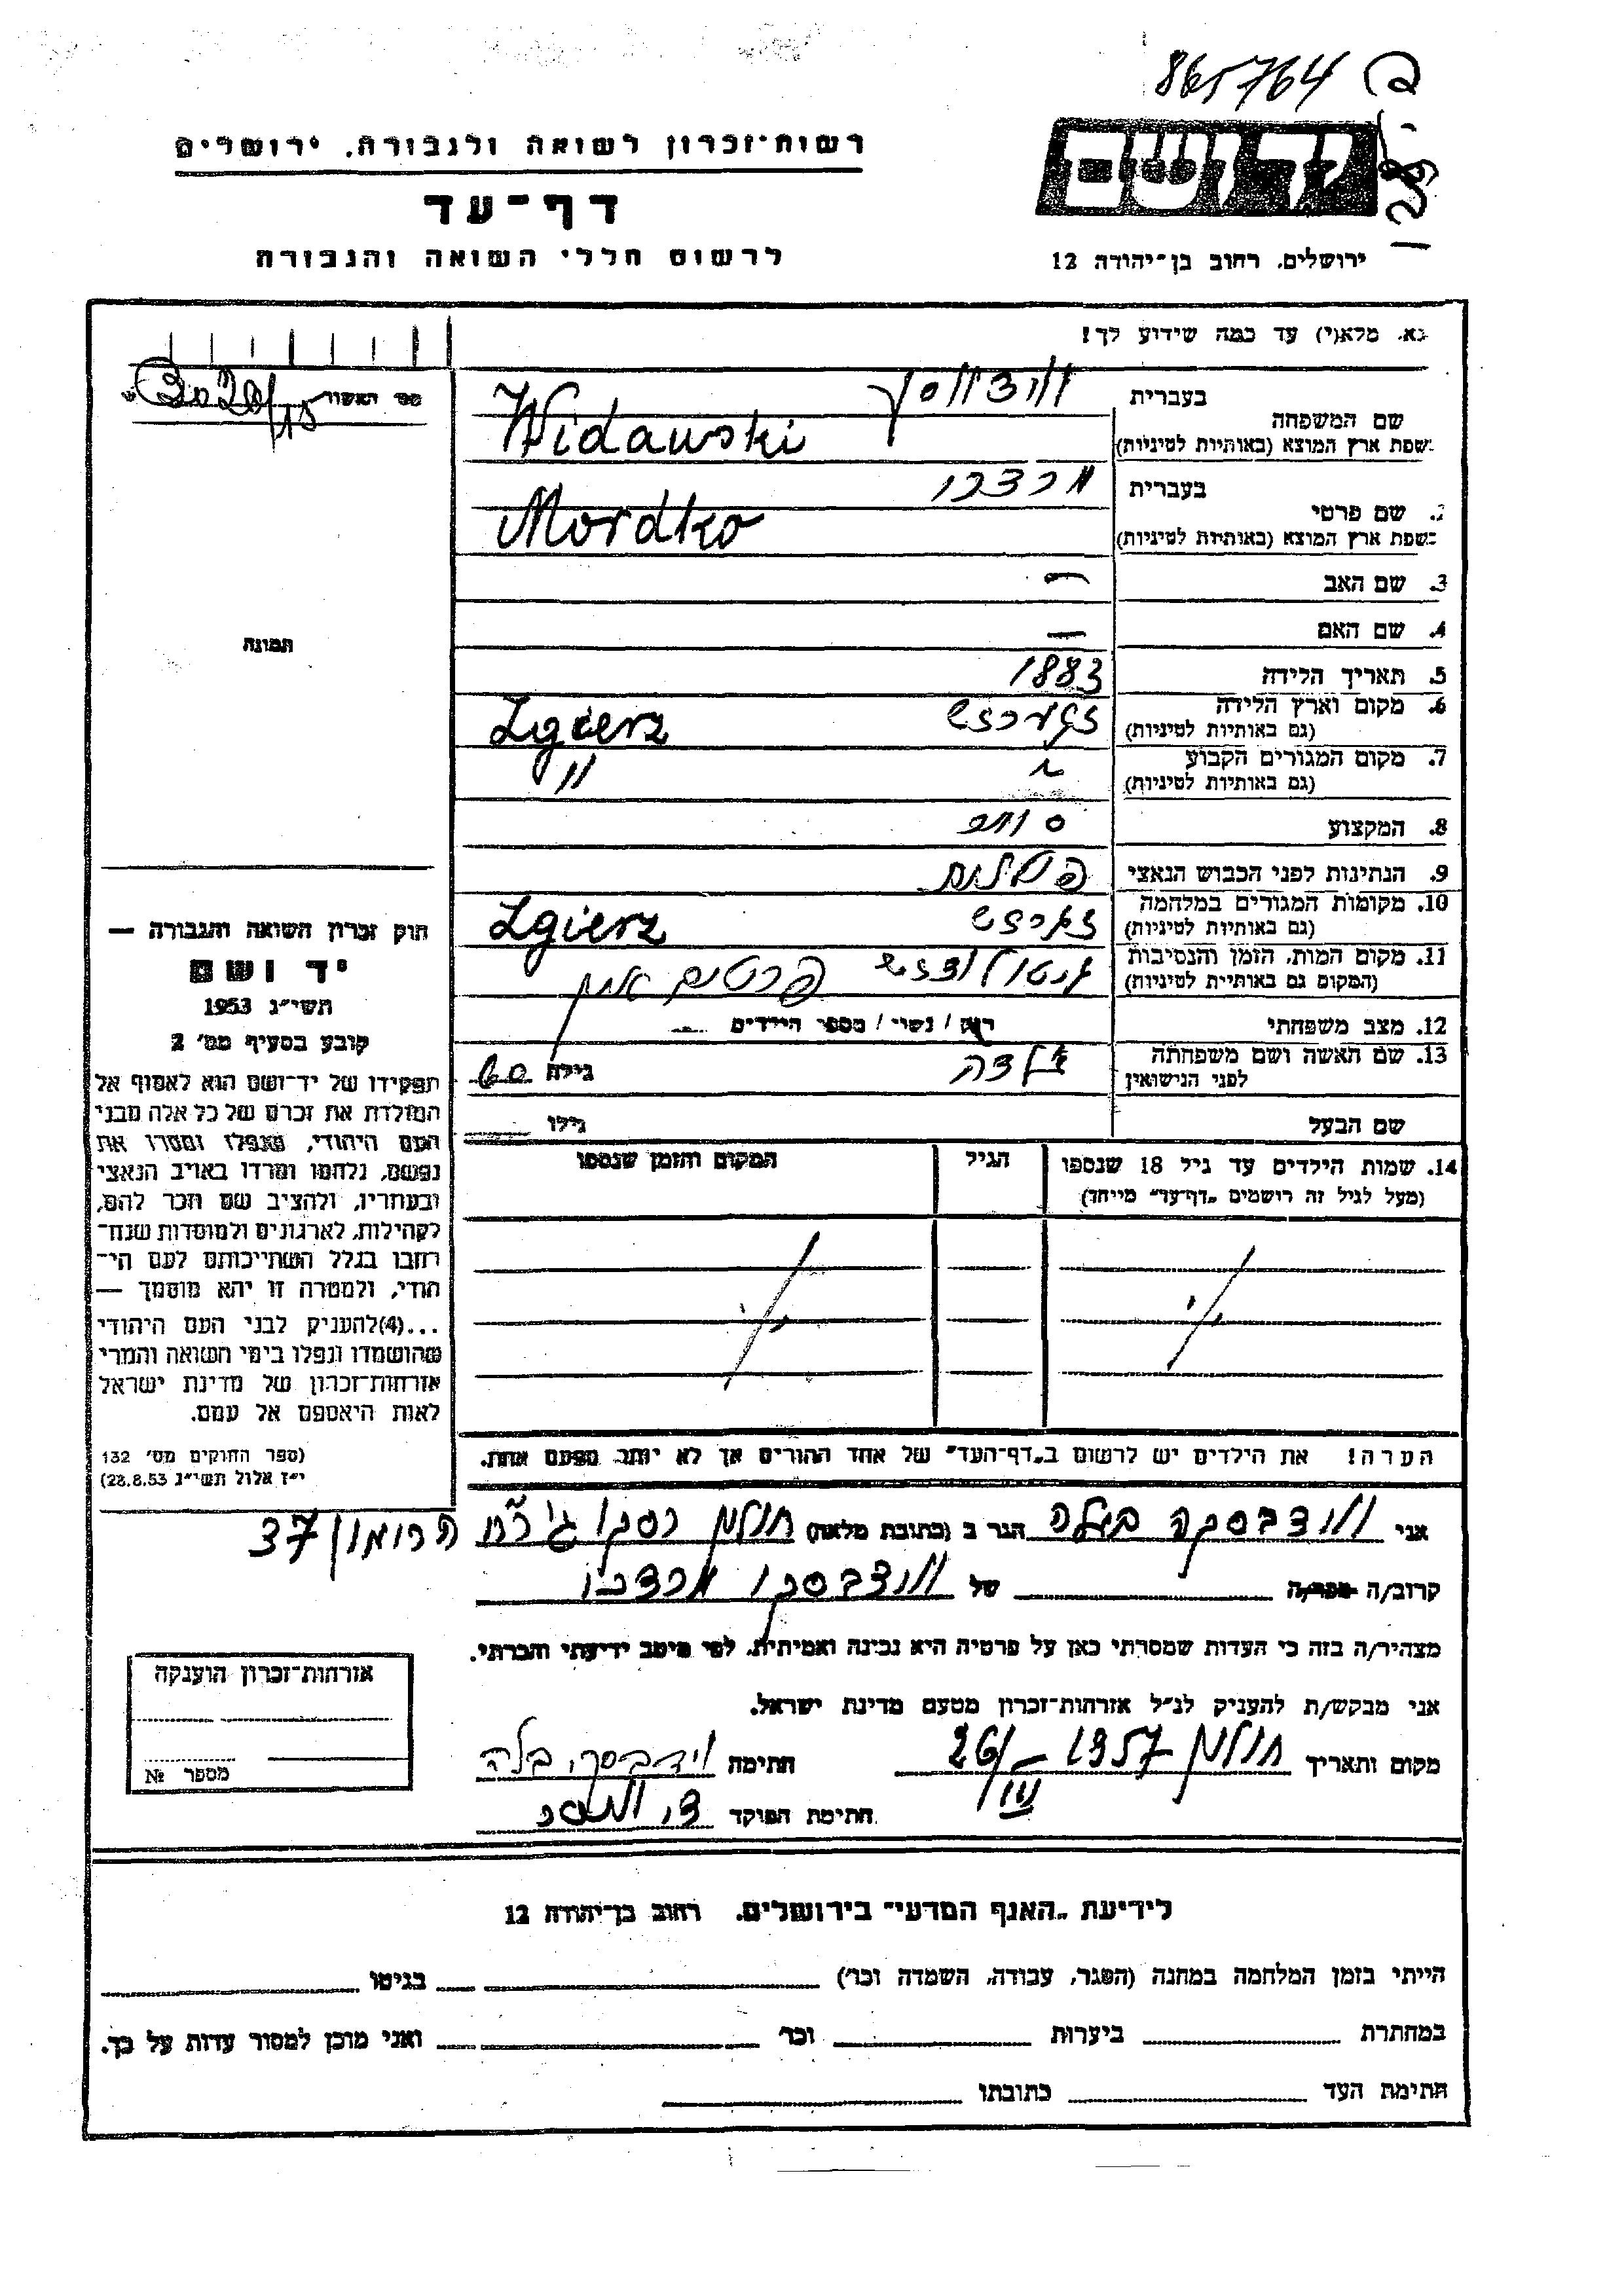 865764
רשות־זכרון לשואה ולגבורה. ירושלים
דף־עד
לרשום חללי השואה והגבורה
יד ושם
ירושלים. רחוב בן־יהודה 12
נא. מלא(י) עד כמה שידוע לך!
מס׳ האשור
שם המשפחה
בעברית
בשפת ארץ המוצא (באותיות לטיניות) Widawski
2. שם פרטי
בעברית מרדכו
בשפת ארץ המוצא (באותיות לטיניות) Mordko
3. שם האב —
4. שם האם —
5. תאריך הלידה 1883
6. מקום וארץ הלידה Zgierz
(גם באותיות לטיניות)
7. מקום המגורים הקבוע "
(גם באותיות לטיניות)
8. המקצוע סוחר
9. הנתינות לפני הכבוש הנאצי
10. מקומות המגורים במלחמה Zgierz
(גם באותיות לטיניות)
11. מקום המות, הזמן והנסיבות גטו לודז׳ פרטים אין
(המקום גם באותיית לטיניות)
12. מצב משפחתי רוק / נשוי / מספר הילדים
13. שם האשה ושם משפחתה
לפני הנישואין
גילה 60
שם הבעל גילו
14. שמות הילדים עד גיל 18 שנספו
(מעל לגיל זה רושמים „דף־עד״ מייחד)
הגיל
המקום והזמן שנספו
הערה! את הילדים יש לרשום ב„דף־העד״ של אחד ההורים אך לא יותר מפעם אחת.
תמונה
חוק זכרון השואה והגבורה —
יד ושם
תשי״ג 1953
קובע בסעיף מס׳ 2
תפקידו של יד־ושם הוא לאסוף אל
המולדת את זכרם של כל אלה מבני
העם היהודי, שנפלו ומסרו את
נפשם, נלחמו ומרדו באויב הנאצי
ובעוזריו, ולהציב שם וזכר להם,
לקהילות, לארגונים ולמוסדות שנח־
רחבו בגלל השתייכותם לעם הי־
הודי, ולמטרה זו יהא מוסמך —
...(4)להעניק לבני העם היהודי
שהושמדו ונפלו בימי השואה והמרי
אזרחות־זכרון של מדינת ישראל
לאות היאספם אל עמם.
(ספר החוקים מס׳ 132
י״ז אלול תשי״ג 28.8.53)
אני וידבסקה בילה הגר ב (כתובת מלאה) חולון רסקו ג׳ רח הרימון 37
קרוב/ה מכר/ה של וידבסקי מרדכו
מצהיר/ה בזה כי העדות שמסרתי כאן על פרטיה היא נכונה ואמיתית, לפי מיטב ידיעתי והכרתי.
אני מבקש/ת להעניק לנ״ל אזרחות־זכרון מטעם מדינת ישראל.
מקום ותאריך חולון 26/III – 1957 חתימה וידבסקי בלה
חתימת הפוקד
אזרחות־זכרון הוענקה
מספר №
לידיעת „האגף המדעי״ בירושלים. רחוב בן־יהודה 12
הייתי בזמן המלחמה במחנה (הסגר, עבודה, השמדה וכו׳) בגיטו
במחתרת ביערות וכו׳ ואני מוכן למסור עדות על כך.
חתימת העד כתובתו